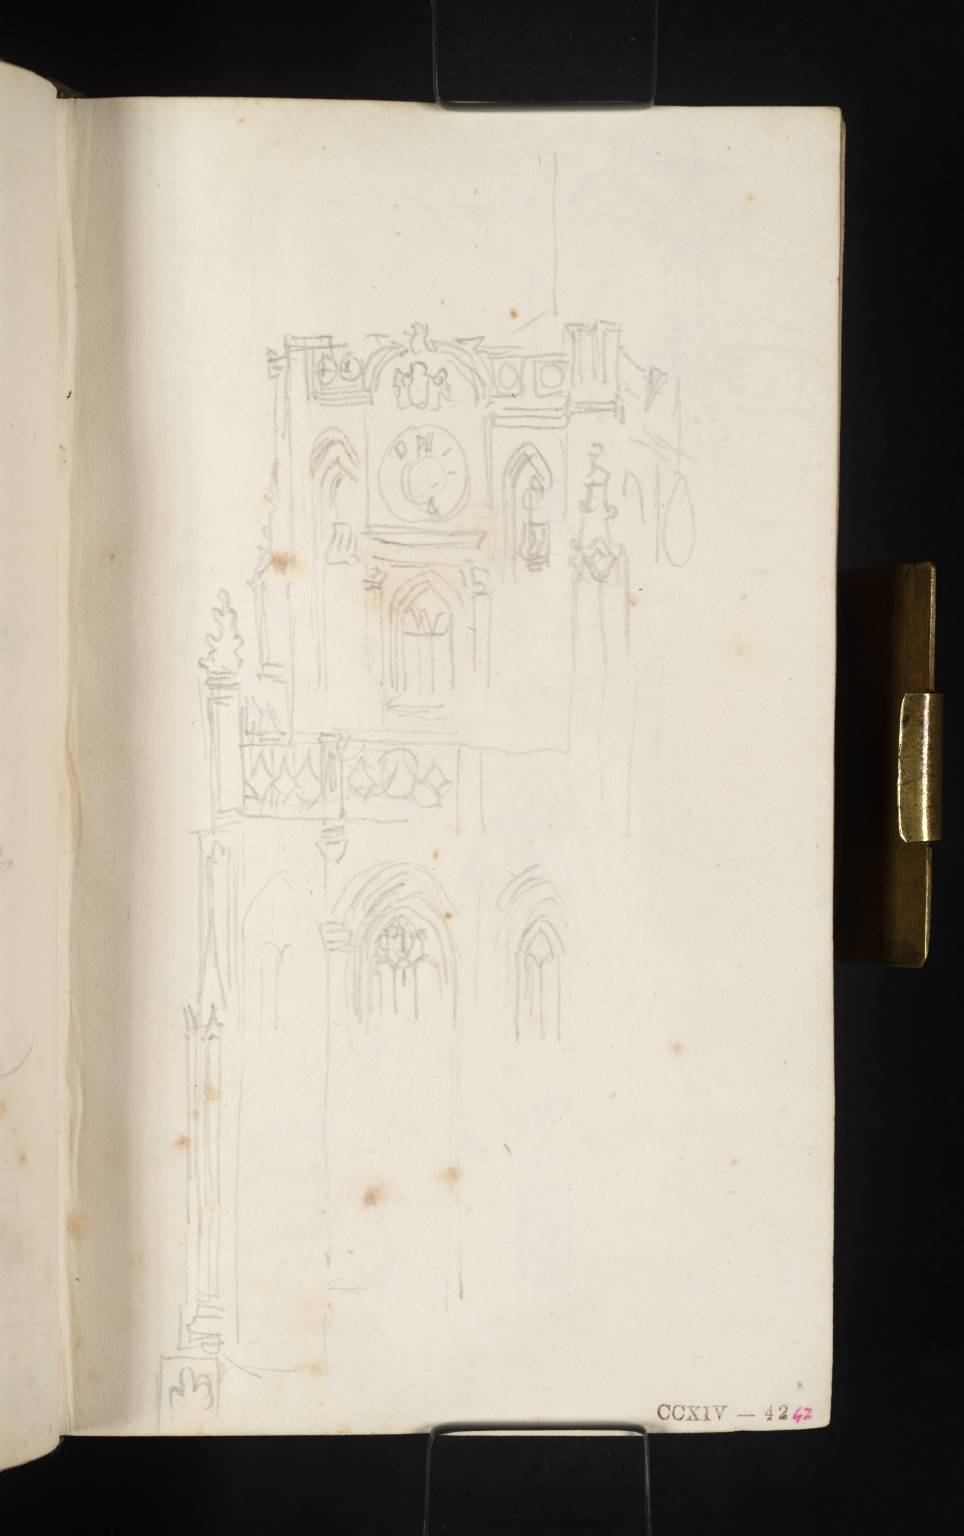 CCXIV — 42 42